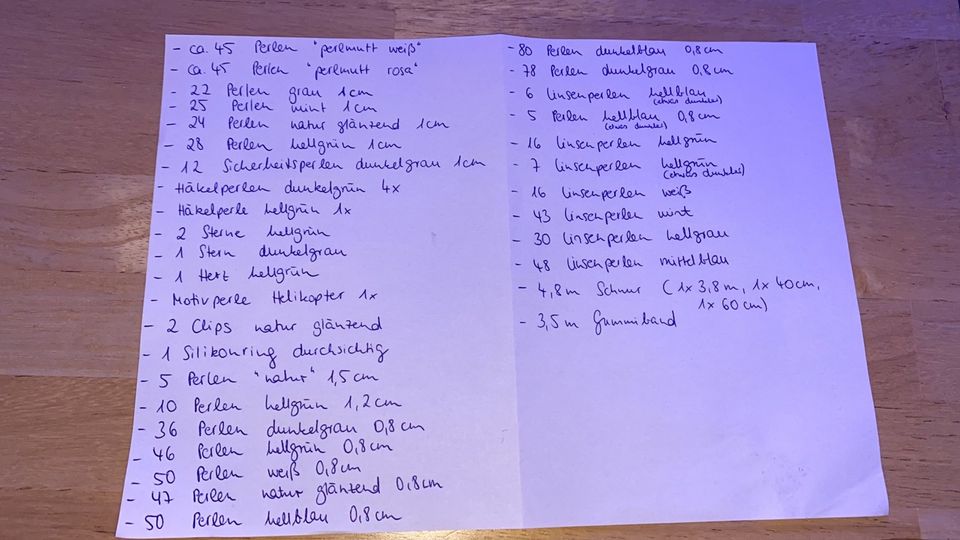 - ca. 45 Perlen "perlmutt weiß"
- ca. 45 Perlen "perlmutt rosa"
- 22 Perlen grau 1cm
- 25 Perlen mint 1cm
- 24 Perlen natur glänzend 1cm
- 28 Perlen hellgrün 1cm
- 12 Sicherheitsperlen dunkelgrau 1cm
- Häkelperlen dunkelgrün 4x
- Häkelperle hellgrün 1x
- 2 Sterne hellgrün
- 1 Stern dunkelgrau
- 1 Herz hellgrün
- Motivperle Helikopter 1x
- 2 Clips natur glänzend
- 1 Silikonring durchsichtig
- 5 Perlen "natur" 1,5cm
- 10 Perlen hellgrün 1,2cm
- 36 Perlen dunkelgrau 0,8cm
- 46 Perlen hellgrün 0,8cm
- 50 Perlen weiß 0,8cm
- 47 Perlen natur glänzend 0,8cm
- 50 Perlen hellblau 0,8cm
- 80 Perlen dunkelblau 0,8cm
- 78 Perlen dunkelgrau 0,8cm
- 6 Linsenperlen hellblau
(etwas dunkler)
- 5 Perlen hellblau 0,8cm
(etwas dunkler)
- 16 Linsenperlen hellgrün
- 7 Linsenperlen hellgrün
(etwas dunkler)
- 16 Linsenperlen weiß
- 43 Linsenperlen mint
- 30 Linsenperlen hellgrau
- 48 Linsenperlen mittelblau
- 4,8m Schnur (1x 3,8m, 1x 40cm,
1x 60cm)
- 3,5m Gummiband